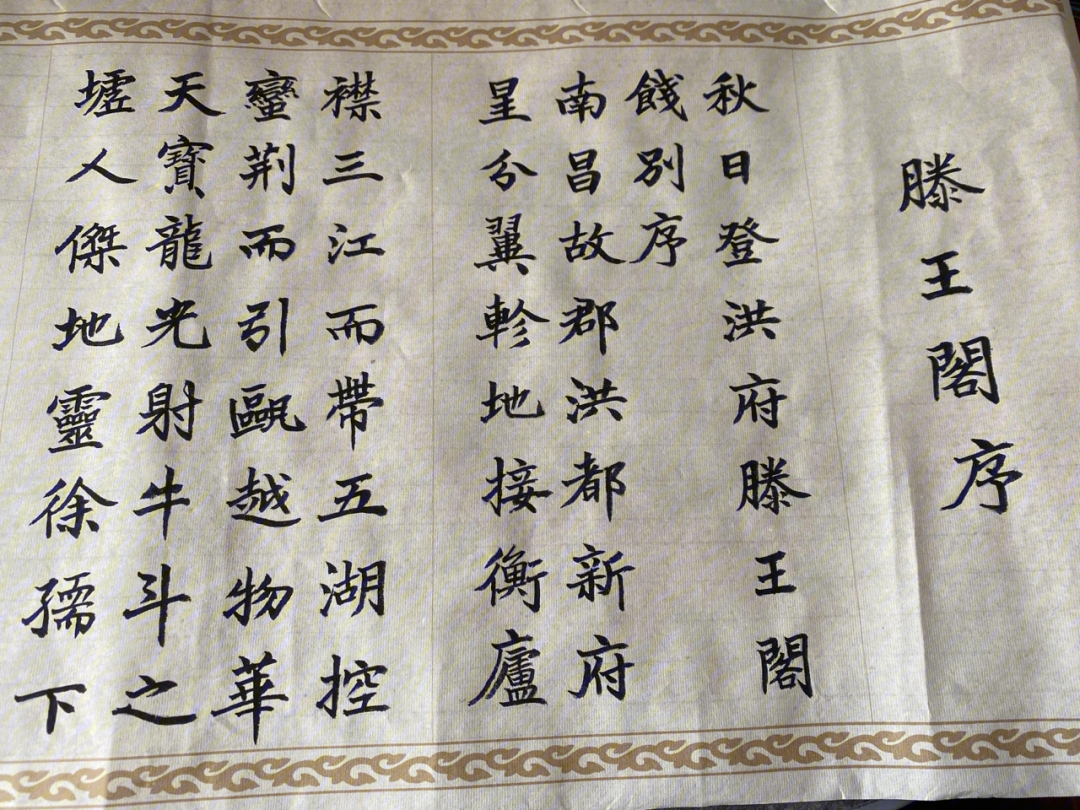 滕王閣序
秋日登洪府滕王閣
餞別序
南昌故郡洪都新府
星分翼軫地接衡廬
襟三江而帶五湖控
蠻荆而引甌越物華
天寶龍光射牛斗之
墟人傑地靈徐孺下